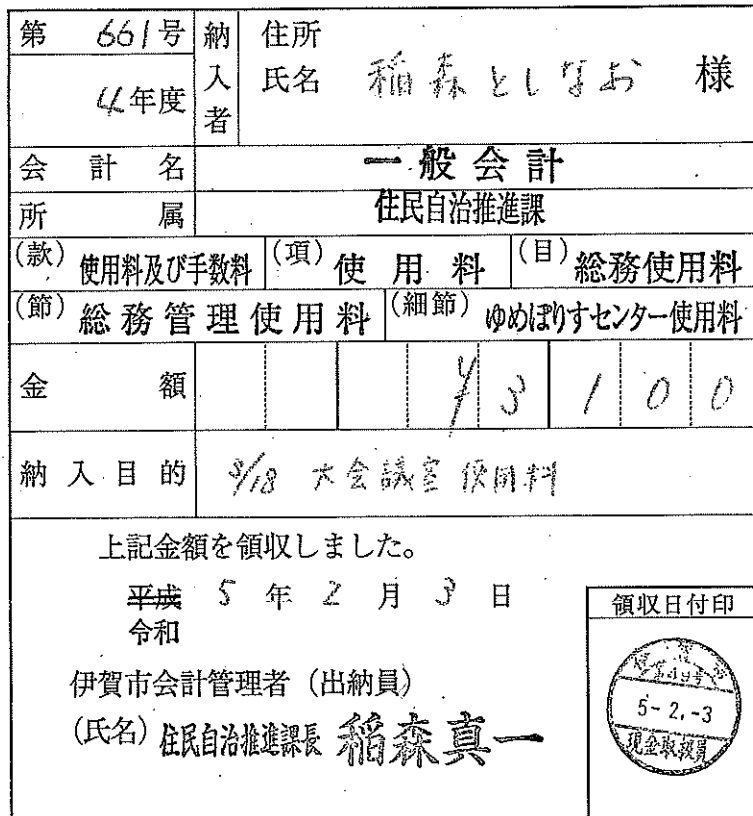 第 661号
4年度
納入者
住所
氏名 稲森としなお 様
会計名 一般会計
所属 住民自治推進課
(款) 使用料及び手数料 (項) 使用料 (目) 総務使用料
(節) 総務管理使用料 (細節) ゆめぽりすセンター使用料
金額 ¥3100
納入目的 3/18 大会議室使用料
上記金額を領収しました。
平成 5年2月3日
令和
伊賀市会計管理者(出納員)
(氏名) 住民自治推進課長 稲森真一
領収日付印
第49号
5-2.-3
現金取扱員